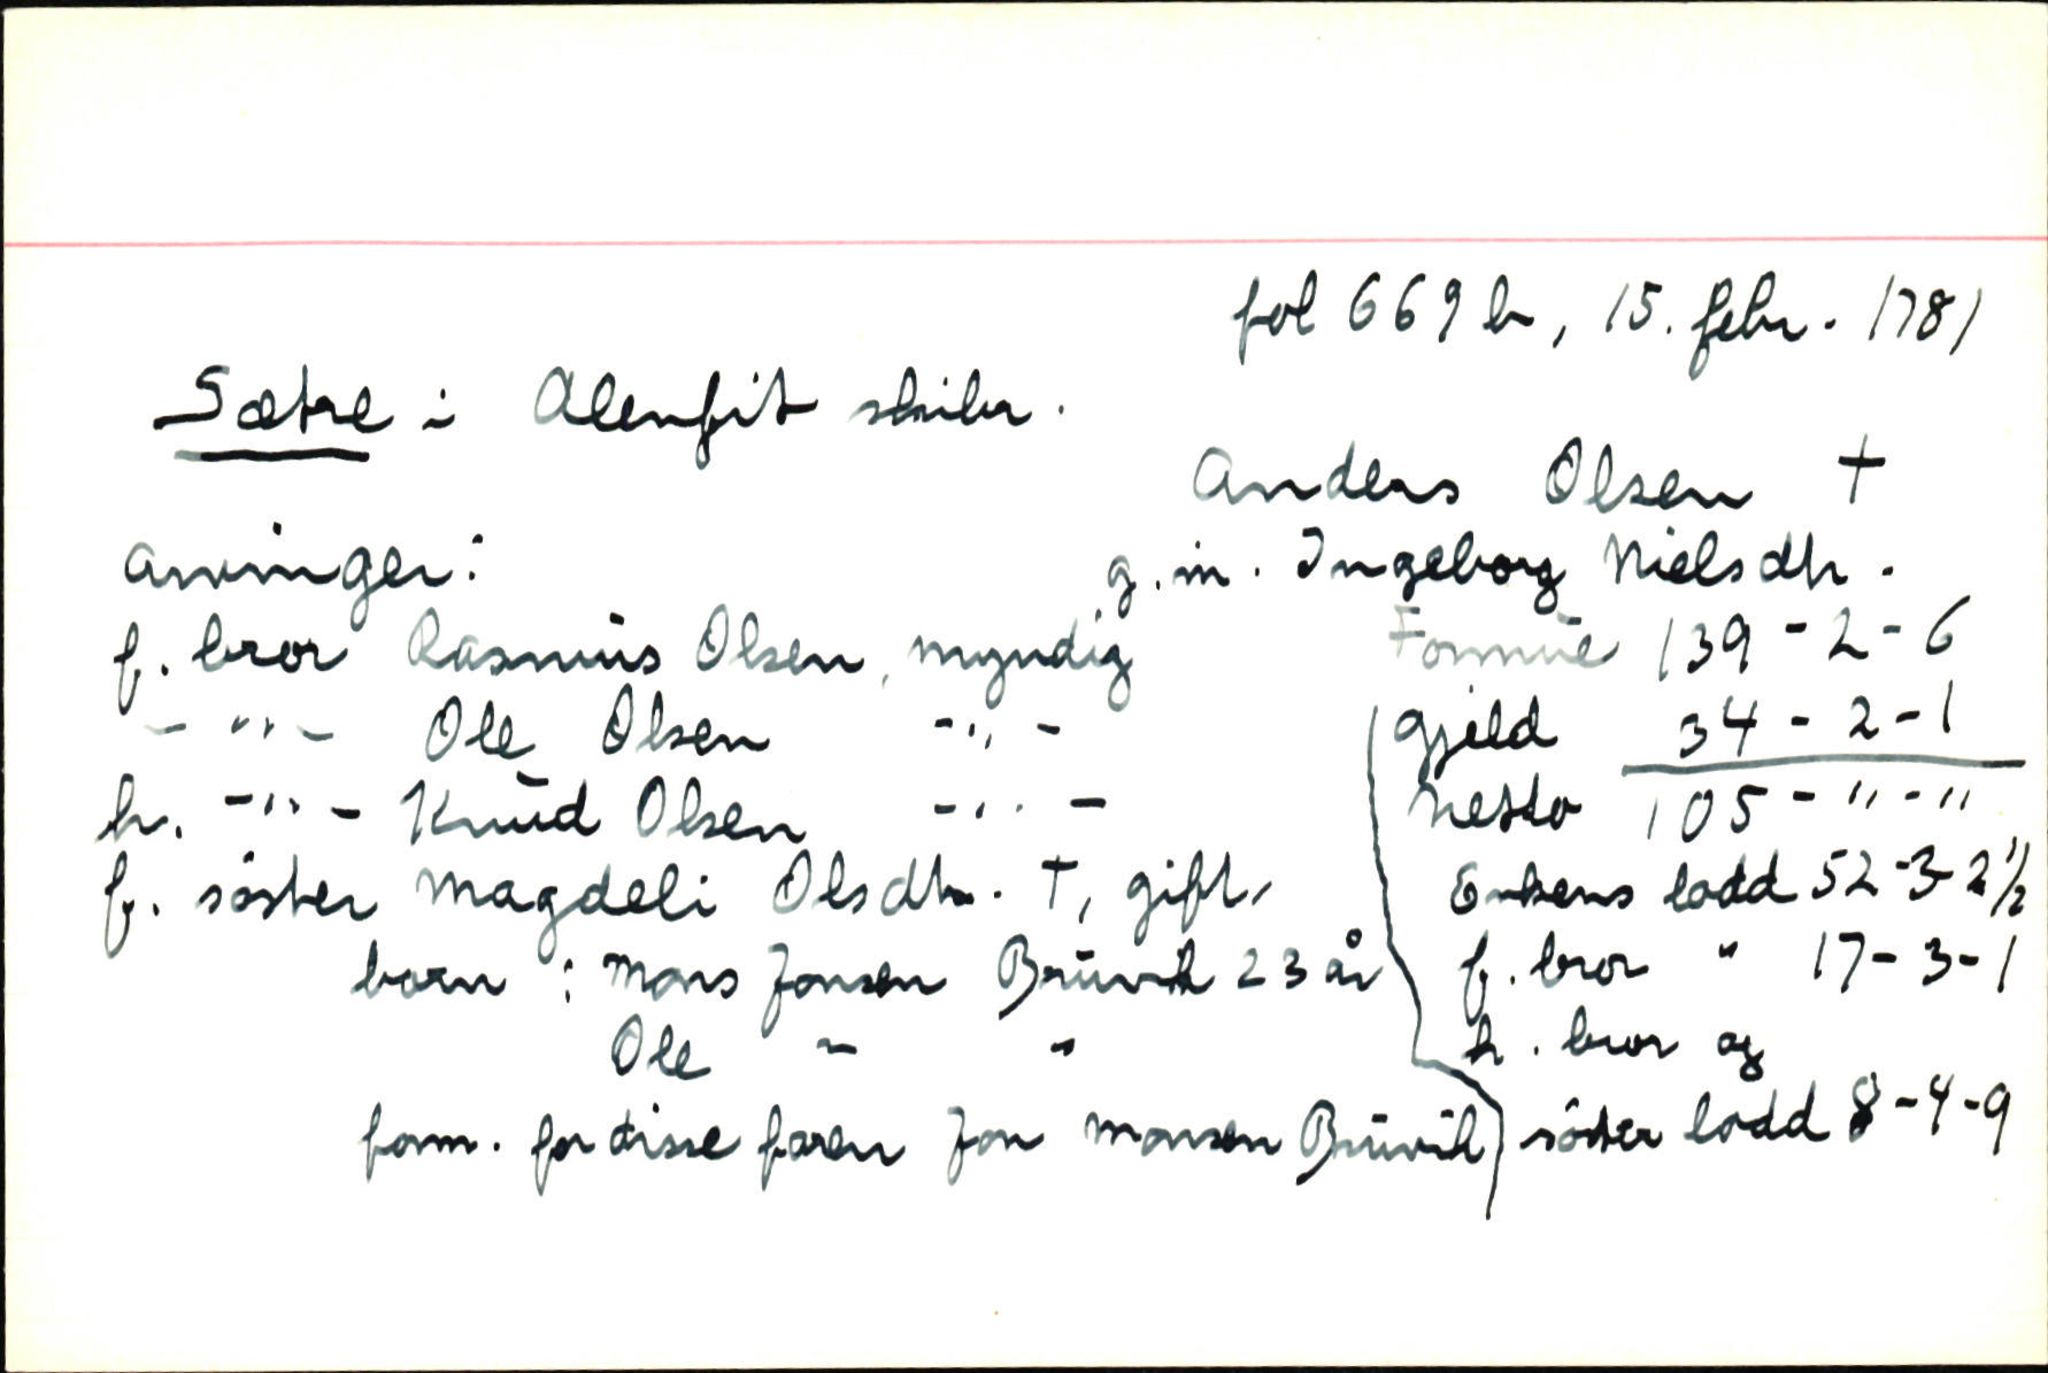 fol 669 b, 15. febr. 1781
Sætre i Alenfit skibr.
Anders Olsen †
g.m. Ingeborg Nielsdtr.
arvinger:
f. bror Rasmus Olsen, myndig
- " - Ole Olsen - " -
h. - " - Knud Olsen - " -
f. söster Magdeli Olsdtr. †, gift,
born : Mons Jonsen Bruvik 23 år
Ole " "
form. for disse faren Jon Monsen Bruvik
Formue 139 - 2 - 6
Gjeld 34 - 2 - 1
Netto 105 - " - "
Enkens lodd 52 - 3 - 2 1/2
f. bror " 17 - 3 - 1
h. bror og
söster lodd 8 - 4 - 9